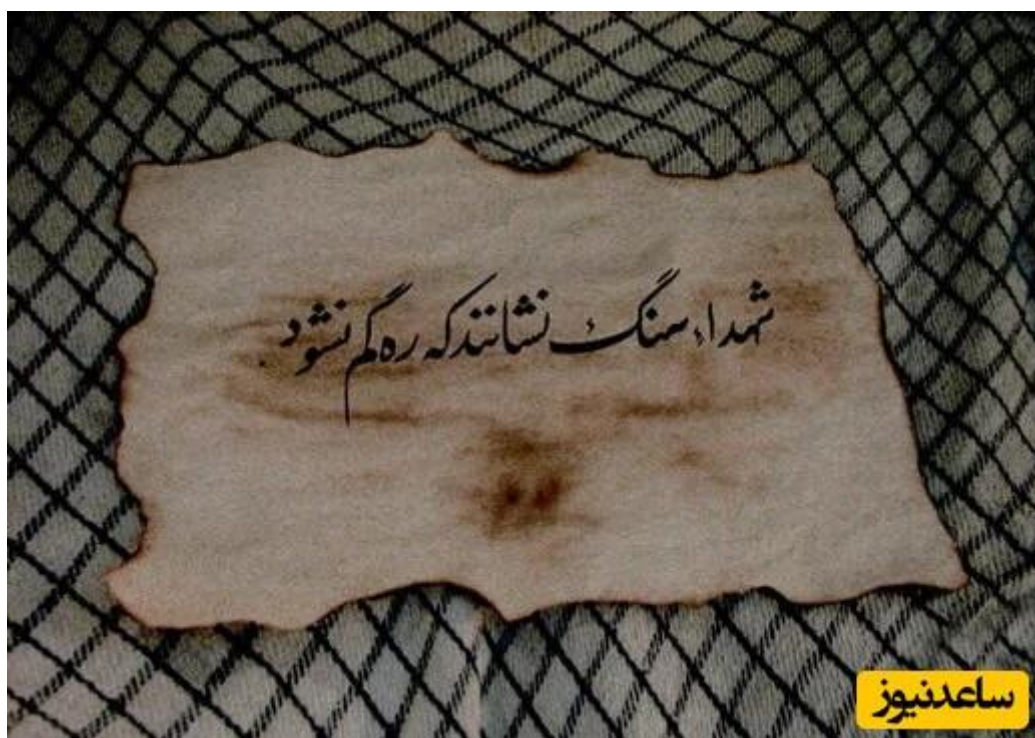 شهداء سنگ نشانند که ره گم نشود
ساعدنیوز